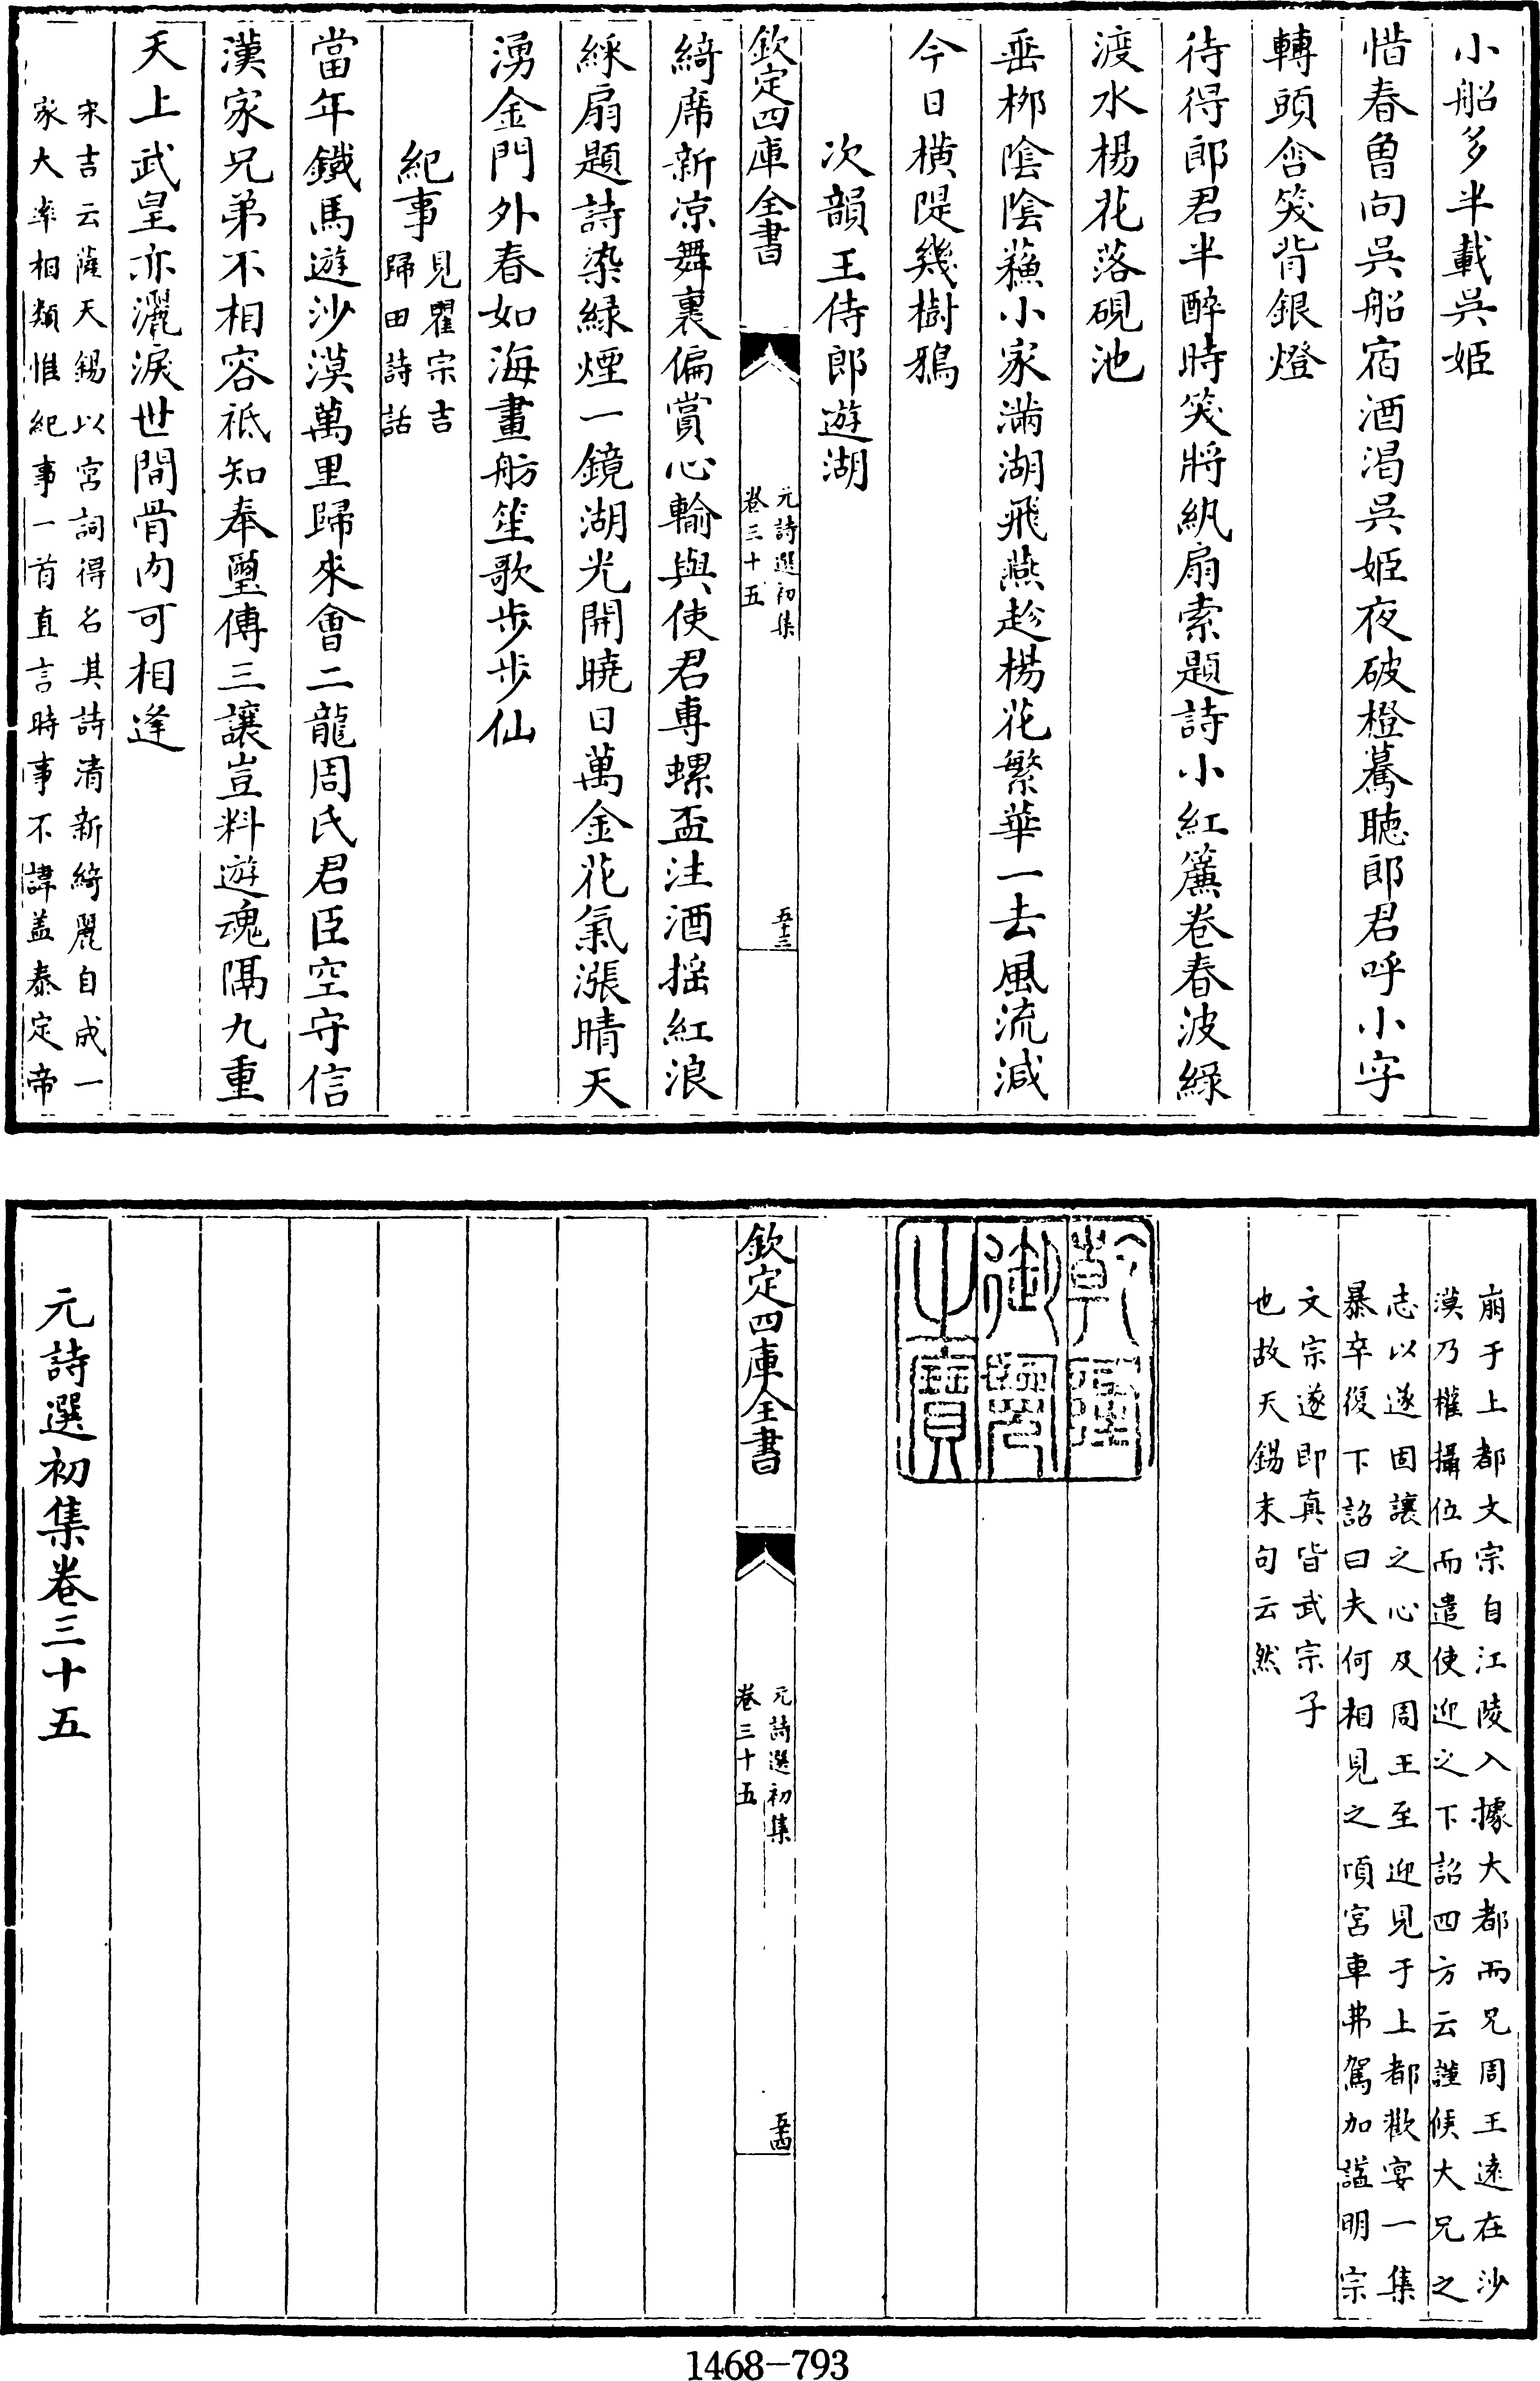 小船多半載吳姬
惜春曾向吳船宿酒渴吳姬夜破橙驀聴郎君呼小字
轉頭含笑背銀燈
待得郎君半醉時笑將紈扇索題詩小紅簾卷春波緑
渡水楊花落硯池
垂栁隂隂蘓小家滿湖飛燕趂楊花繁華一去風流減
今日橫隄幾樹鴉
次韻王侍郎遊湖
欽定四庫全書
元詩選初集
卷三十五
五十三
綺席新凉舞裏偏賞心輸與使君專螺盃注酒揺紅浪
綵扇題詩染緑煙一鏡湖光開曉日萬金花氣漲晴天
湧金門外春如海畫舫笙歌步步仙
紀事
見瞿宗吉
歸田詩話
當年鐵馬遊沙漠萬里歸來會二龍周氏君臣空守信
漢家兄弟不相容祗知奉璽傳三讓豈料遊魂隔九重
天上武皇亦灑淚世間骨肉可相逢
宋吉云薩天錫以宮詞得名其詩清新綺麗自成一
家大率相類惟紀事一首直言時事不諱盖泰定帝
崩于上都文宗自江陵入據大都而兄周王逺在沙
漠乃權攝位而遣使迎之下詔四方云謹俟大兄之
志以遂固讓之心及周王至迎見于上都歡宴一集
暴卒復下詔曰夫何相見之頃宮車弗駕加諡明宗
文宗遂即真皆武宗子
也故天錫末句云然
乾隆
御覽
之寶
欽定四庫全書
元詩選初集
卷三十五
五十四
元詩選初集卷三十五
1468-793